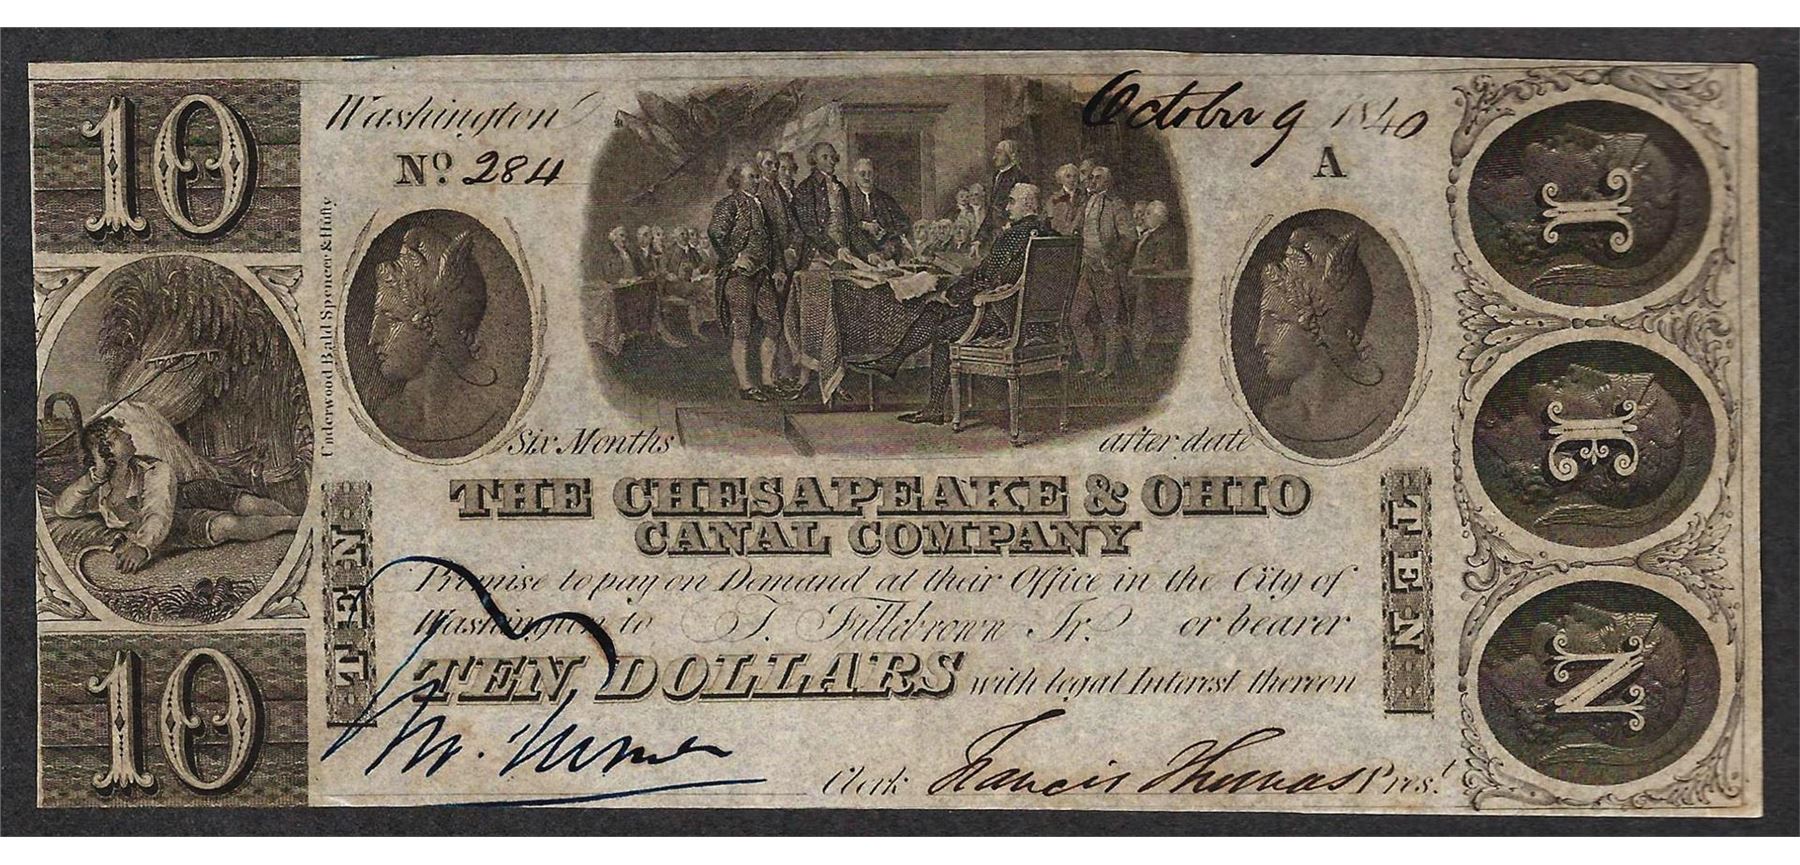 10
Washington
October 9 1840
No. 284
A
Underwood Bald Spencer & Hufty
Six Months after date
THE CHESAPEAKE & OHIO
CANAL COMPANY
Promise to pay on Demand at their Office in the City of
Washington to T. Fillebrown Jr. or bearer
TEN DOLLARS with legal Interest thereon
Clerk Francis Thomas Prest.
TEN
TEN
10
TEN